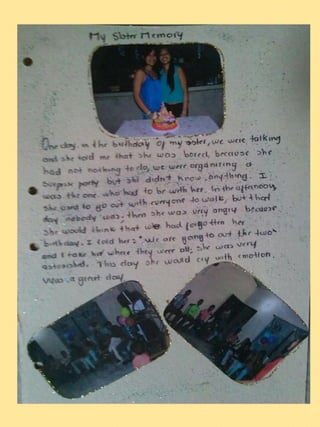 My Sister Memory
One day, in the birthday of my sister, we were talking
and she told me that she was bored, because she
had not nothing to do, we were organizing a
surprise party but she didn't know anything. I
was the one who had to be with her. In the afternoon,
she said to go out with everyone to walk, but that
day nobody was, then she was very angry because
She would think that we had forgotten her
birthday. I told her: "We are going to out the two"
and I take her where they were all; she was very
astonished. This day she would cry with emotion.
Was a great day